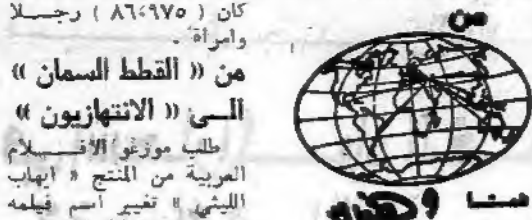 كان ( ٨٦٤٩٧٥ ) رجـــلا
وامرأة .
من « القطط السمان »
الـــى « الانتهازيون »
طلب موزعو الافـــــلام
العربية من المنتج « ايهاب
الليثي » تغيير اسم فيلمه
من
هنــا وهناك